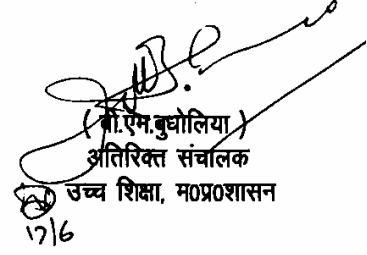 ( बी.एम.बुघोलिया )
अतिरिक्त संचालक
उच्च शिक्षा, म0प्र0शासन
17/6